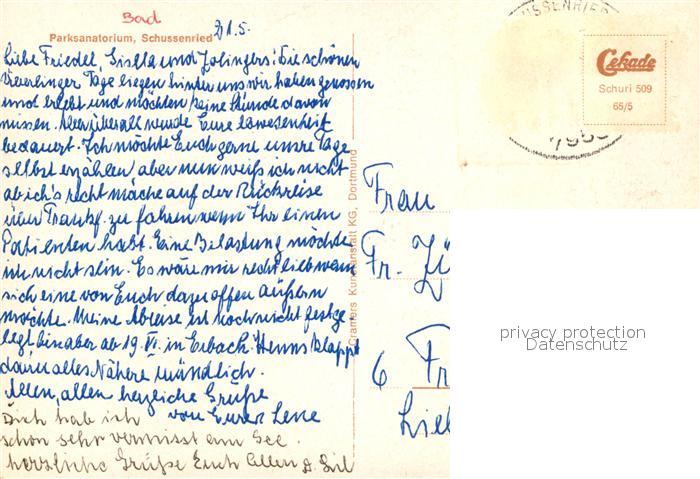 Bad
21.5.
Parksanatorium, Schussenried
Liebe Friedel, Gisela und Zolingers! Die schönen
Tage liegen hinter uns wir haben genossen
und erlebt und möchten keine Stunde davon
missen. Aber überall wurde Eure Abwesenheit
bedauert. Ich möchte Euch gerne unsre Tage
selbst erzählen aber nun weiß ich nicht
ob ich's recht mache auf der Rückreise
über Frankf. zu fahren wenn Ihr einen
Patienten habt. Eine Belastung möchte
ich nicht sein. Es wäre mir recht lieb wenn
sich eine von Euch dazu offen äußern
möchte. Meine Abreise ist noch nicht festge-
legt bin aber ab 19. VI. in Erbach. Wenns klappt
dann alles Nähere mündlich.
Allen, allen herzliche Grüße
von Eurer Lene
Dich hab ich
schon sehr vermisst am See.
herzliche Grüße Euch Allen
Cramers Kunstanstalt KG, Dortmund
SSENRIED
Cekade
Schuri 509
65/5
7953
Frau
Fr. Zü
6 Fr
privacy protection
Datenschutz